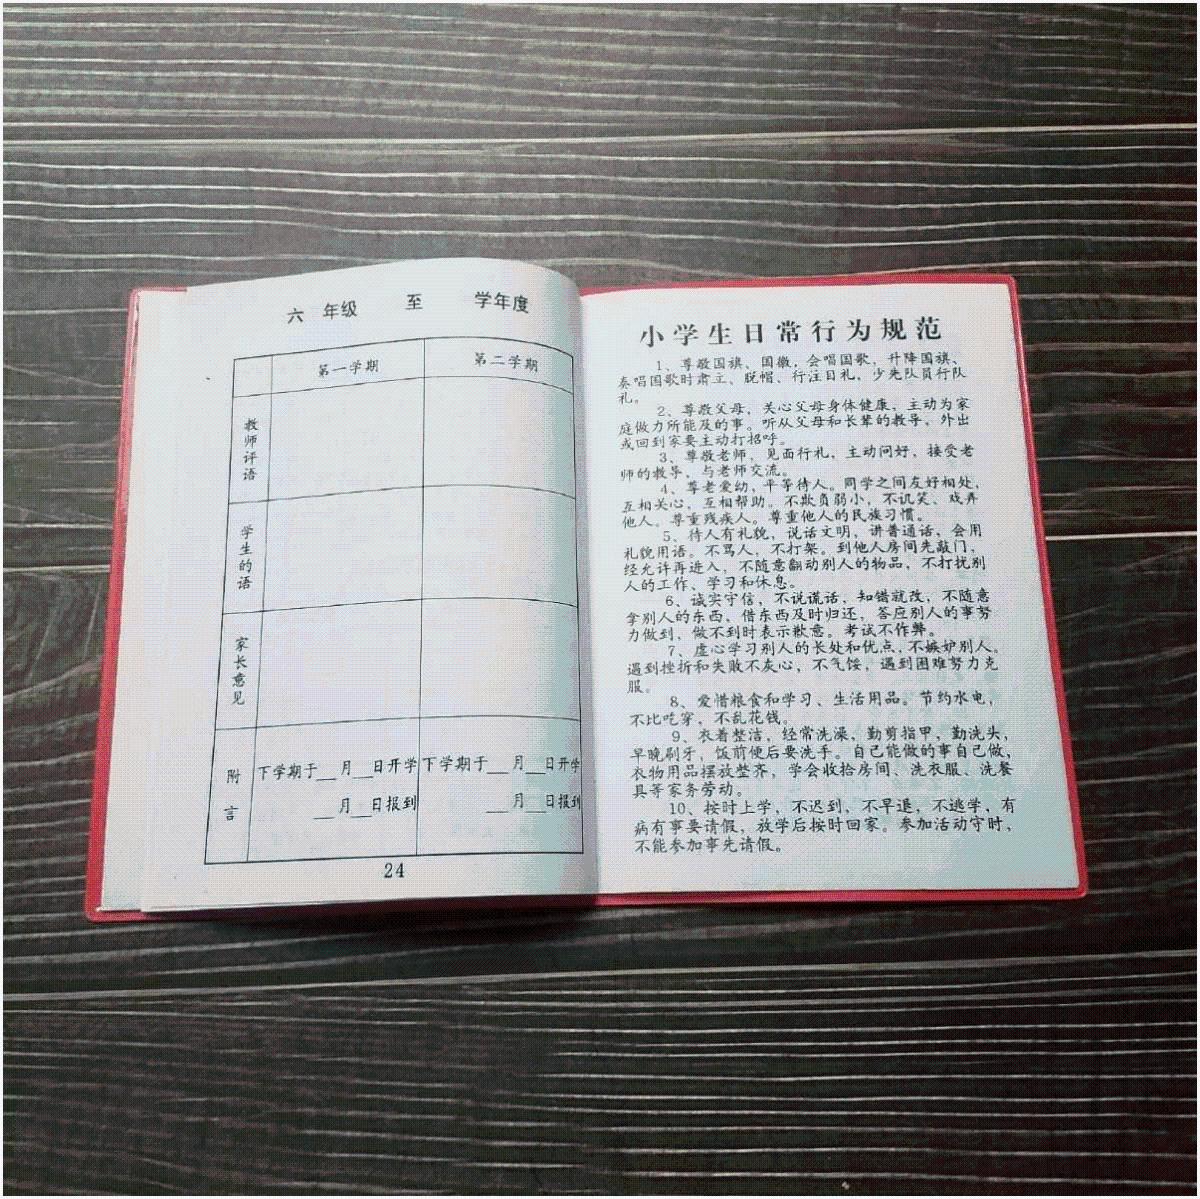 六 年级 至 学年度
第一学期 第二学期
教师评语
学生的语
家长意见
附言
下学期于__月__日开学 下学期于__月__日开学
__月__日报到 __月__日报到
24
小学生日常行为规范
1、尊敬国旗、国徽，会唱国歌，升降国旗、
奏唱国歌时肃立、脱帽、行注目礼，少先队员行队
礼。
2、尊敬父母，关心父母身体健康，主动为家
庭做力所能及的事。听从父母和长辈的教导，外出
或回到家要主动打招呼。
3、尊敬老师，见面行礼，主动问好，接受老
师的教导，与老师交流。
4、尊老爱幼，平等待人。同学之间友好相处，
互相关心，互相帮助。不欺负弱小，不讥笑、戏弄
他人。尊重残疾人。尊重他人的民族习惯。
5、待人有礼貌，说话文明，讲普通话，会用
礼貌用语。不骂人，不打架。到他人房间先敲门，
经允许再进入，不随意翻动别人的物品，不打扰别
人的工作、学习和休息。
6、诚实守信，不说谎话，知错就改，不随意
拿别人的东西，借东西及时归还，答应别人的事努
力做到，做不到时表示歉意。考试不作弊。
7、虚心学习别人的长处和优点，不嫉妒别人。
遇到挫折和失败不灰心，不气馁，遇到困难努力克
服。
8、爱惜粮食和学习、生活用品。节约水电，
不比吃穿，不乱花钱。
9、衣着整洁，经常洗澡，勤剪指甲，勤洗头，
早晚刷牙，饭前便后要洗手。自己能做的事自己做，
衣物用品摆放整齐，学会收拾房间、洗衣服、洗餐
具等家务劳动。
10、按时上学，不迟到，不早退，不逃学，有
病有事要请假，放学后按时回家。参加活动守时，
不能参加事先请假。